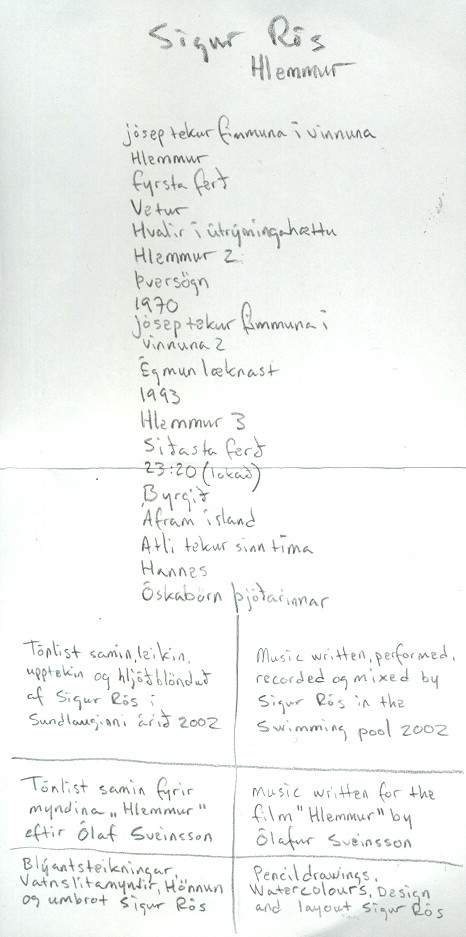 Sigur Rós
Hlemmur
jósep tekur fimmuna í vinnuna
Hlemmur
fyrsta ferð
Vetur
Hvalir í útrýmingahættu
Hlemmur 2
Þversögn
1970
jósep tekur fimmuna í
vinnuna 2
Ég mun læknast
1993
Hlemmur 3
Síðasta ferð
23:20 (lokað)
Byrgið
Áfram ísland
Atli tekur sinn tíma
Hannes
Óskabörn þjóðarinnar
Tónlist samin, leikin,
upptekin og hljóðblönduð
af Sigur Rós í
Sundlauginni árið 2002
Music written, performed,
recorded og mixed by
Sigur Rós in the
Swimming pool 2002
Tónlist samin fyrir
myndina „Hlemmur"
eftir Ólaf Sveinsson
Music written for the
film "Hlemmur" by
Ólafur Sveinsson
Blýantsteikningar,
Vatnslitamyndir, Hönnun
og umbrot Sigur Rós
Pencildrawings,
Watercolours, Design
and layout Sigur Rós